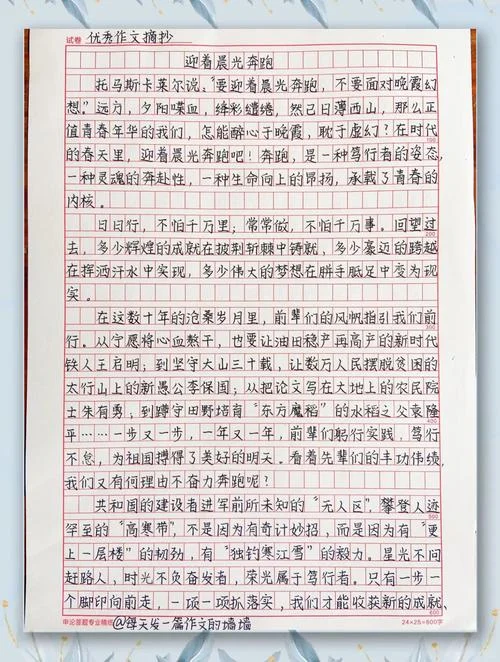 试卷 优秀作文摘抄
迎着晨光奔跑
托马斯卡莱尔说："要迎着晨光奔跑，不要面对晚霞幻
想。"远方，夕阳喋血，绛彩缱绻，然已日薄西山，那么正
值青春年华的我们，怎能醉心于晚霞，耽于虚幻？在时代
的春天里，迎着晨光奔跑吧！奔跑，是一种笃行者的姿态，
一种灵魂的奔赴性，一种生命向上的昂扬，承载了青春的
内核。
日日行，不怕千万里；常常做，不怕千万事。回望过
去，多少辉煌的成就在披荆斩棘中铸就，多少豪迈的跨越
在挥洒汗水中实现，多少伟大的梦想在胼手胝足中变为现
实。
在这数十年的沧桑岁月里，前辈们的风帆指引我们前
行。从宁愿将心血熬干，也要让油田稳产再高产的新时代
铁人王启明；到坚守大山三十载，让数万人民摆脱贫困的
太行山上的新愚公李保国；从把论文写在大地上的农民院
士朱有勇；到蹲守田野培育"东方魔稻"的水稻之父袁隆
平……一步又一步，一年又一年，前辈们躬行实践，笃行
不怠，为祖国搏得了美好的明天。看着先辈们的丰功伟绩，
我们又有何理由不奋力奔跑呢？
共和国的建设者进军前所未知的"无人区"，攀登人迹
罕至的"高寒带"，不是因为有奇计妙招，而是因为有"更
上一层楼"的韧劲，有"独钓寒江雪"的毅力。星光不问
赶路人，时光不负奋发者，荣光属于笃行者。只有一步一
个脚印向前走，一项一项抓落实，我们才能收获新的成就、
申论答题专业稿纸 @每天发一篇作文的墙墙 24×25=600字